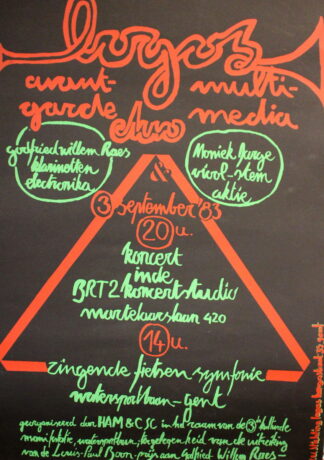 logos
avant-
garde
multi-
media
duo
godfried willem Raes
klarinetten
elektronika
Moniek Darge
viool-stem
aktie
&
3 september '83
20 u.
koncert
in de
BRT2 koncertstudio
martelaarslaan 420
14 u.
zingende fietsen symfonie
watersportbaan-gent
georganiseerd door HAM & CSC in het raam van de 3de kulturele
manifestatie, watersportbaan, ter gelegenheid van de uitreiking
van de Louis-Paul Boon-prijs aan Godfried-Willem Raes